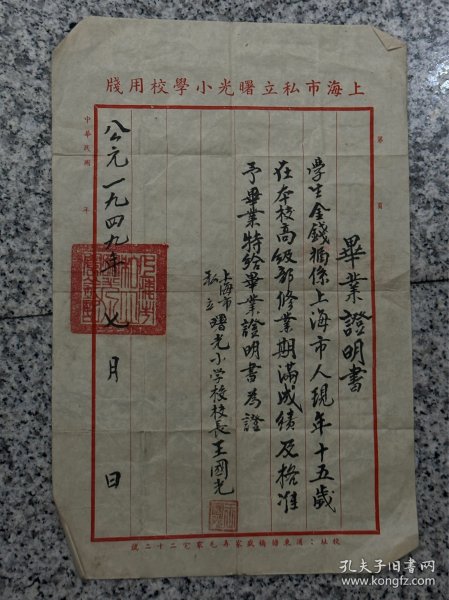 上海市私立曙光小學校用牋
第 頁
畢業證明書
學生金錢楣係上海市人現年十五歲
在本校高級部修業期滿成績及格准
予畢業特給畢業證明書為證
上海市私立曙光小学校校長王國光
公元一九四九年七月 日
中華民國 年
校址：浦東
二十二號
孔夫子旧书网
www.kongfz.com